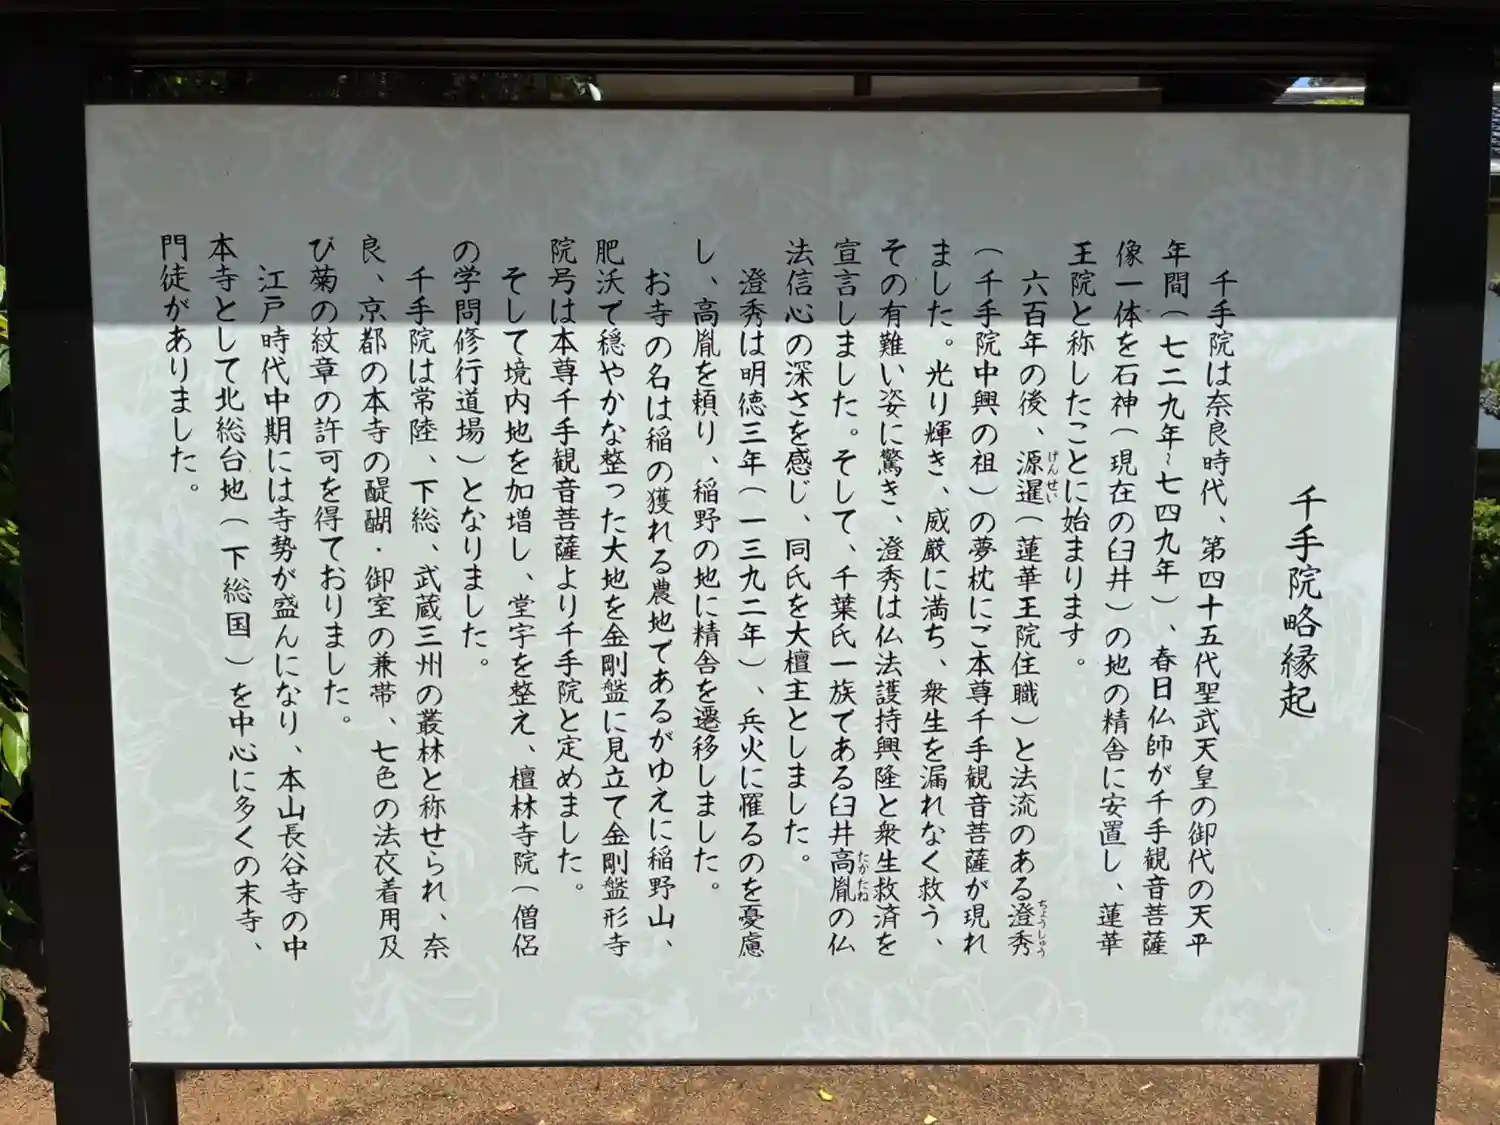 千手院略縁起
千手院は奈良時代、第四十五代聖武天皇の御代の天平
年間（七二九年~七四九年）、春日仏師が千手観音菩薩
像一体を石神（現在の臼井）の地の精舎に安置し、蓮華
王院と称したことに始まります。
六百年の後、源暹（蓮華王院住職）と法流のある澄秀
げんせい
ちょうしゅう
（千手院中興の祖）の夢枕にご本尊千手観音菩薩が現れ
ました。光り輝き、威厳に満ち、衆生を漏れなく救う、
その有難い姿に驚き、澄秀は仏法護持興隆と衆生救済を
宣言しました。そして、千葉氏一族である臼井高胤の仏
たかたね
法信心の深さを感じ、同氏を大檀主としました。
澄秀は明徳三年（一三九二年）、兵火に罹るのを憂慮
し、高胤を頼り、稲野の地に精舎を遷移しました。
お寺の名は稲の獲れる農地であるがゆえに稲野山、
肥沃で穏やかな整った大地を金剛盤に見立て金剛盤形寺
院号は本尊千手観音菩薩より千手院と定めました。
そして境内地を加増し、堂宇を整え、檀林寺院（僧侶
の学問修行道場）となりました。
千手院は常陸、下総、武蔵三州の叢林と称せられ、奈
良、京都の本寺の醍醐・御室の兼帯、七色の法衣着用及
び菊の紋章の許可を得ておりました。
江戸時代中期には寺勢が盛んになり、本山長谷寺の中
本寺として北総台地（下総国）を中心に多くの末寺、
門徒がありました。